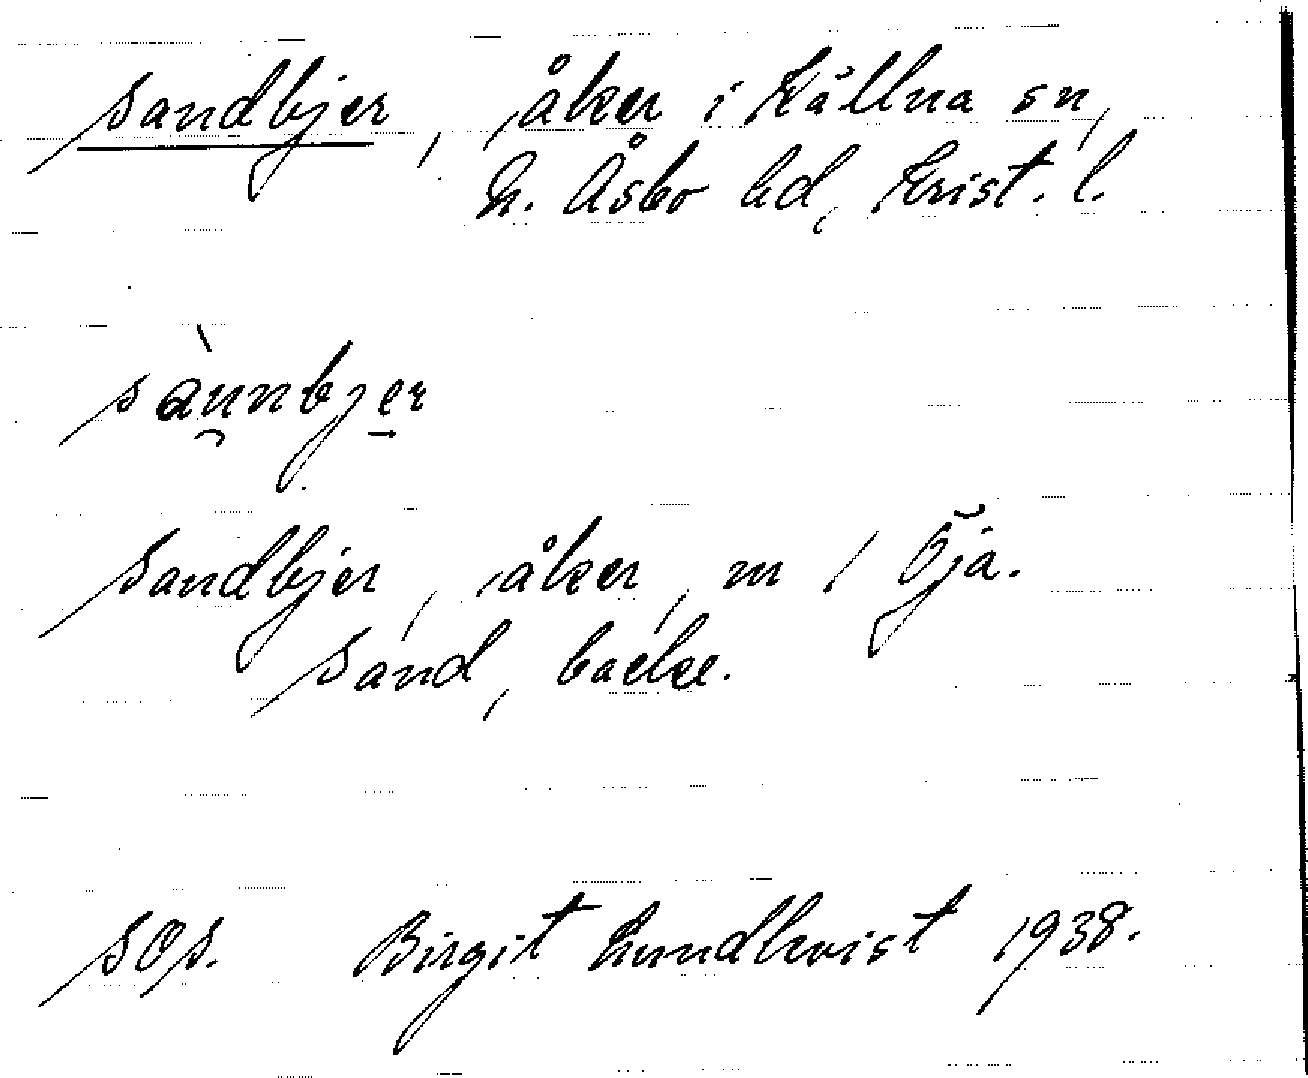 Sandbjer, åker i Källna sn,
N. Åsbo hd, Krist. l.
sànnbjer
Sandbjer, åker, m /
Sand, backe.
SOS. Birgit Lundkvist 1938.